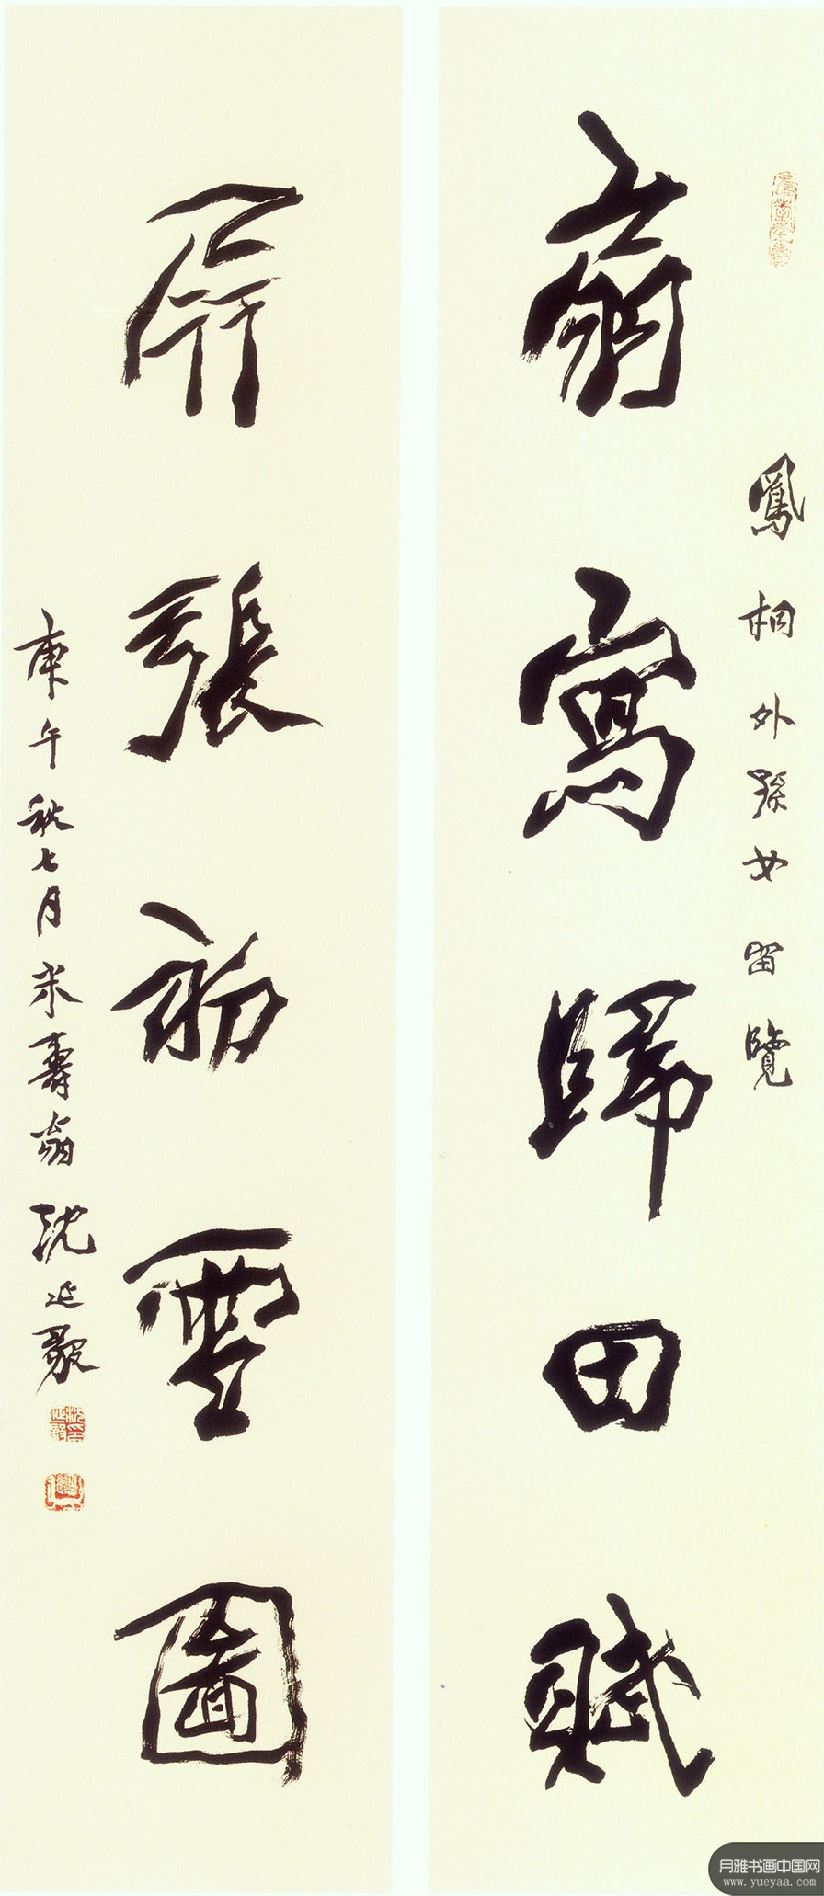 鳳桐外孫女留覽
扇寫歸田賦
屏張初圖
庚午秋七月米壽翁沈延毅
月雅书画中国网
www.yueyaa.com